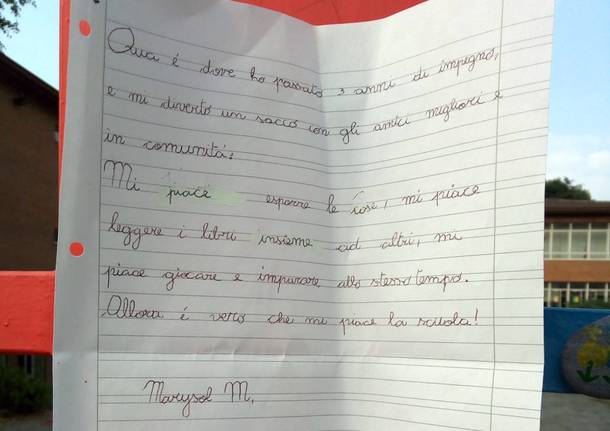 Qua é dove ho passato 3 anni di impegno,
e mi diverto un sacco con gli amici migliori e
in comunitá:
Mi piace esporre le cose, mi piace
leggere i libri insieme ad altri, mi
piace giocare e impurare allo stesso tempo.
Allora é vero che mi piace la scuola!
Marysol M.